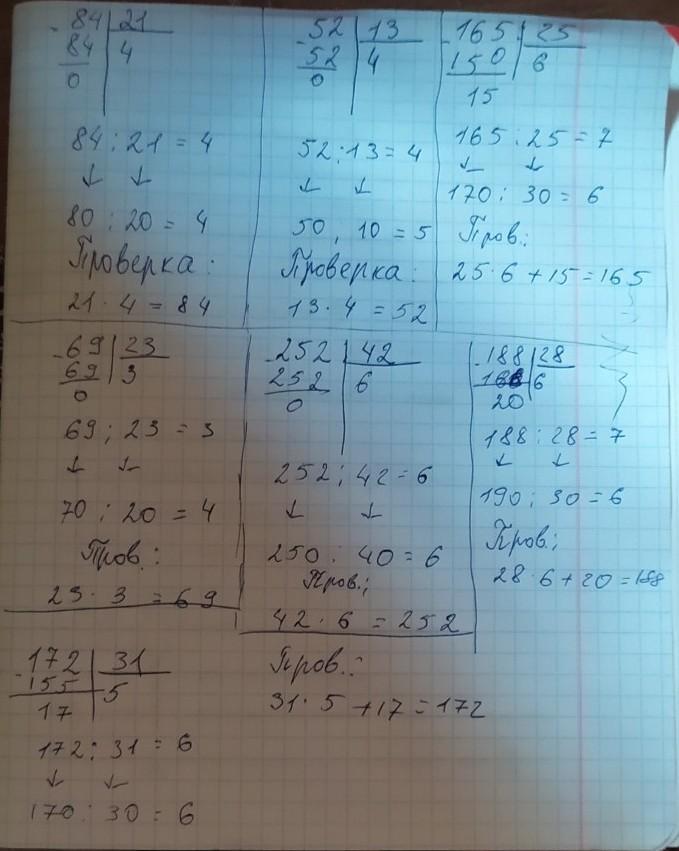 84 21
84 4
0
84 : 21 = 4
↓ ↓
80 : 20 = 4
Проверка :
21 · 4 = 84
52 13
52 4
0
52 : 13 = 4
↓ ↓
50 , 10 = 5
Проверка :
13 · 4 = 52
165 25
150 6
15
165 : 25 = 7
↓ ↓
170 : 30 = 6
Пров.:
25 · 6 + 15 = 165
69 23
69 3
0
69 ; 23 = 3
↓ ↓
70 : 20 = 4
Пров. :
23 · 3 = 69
252 42
252 6
0
252 ; 42 = 6
↓ ↓
250 : 40 = 6
Пров.;
42 · 6 = 252
188 28
168 6
20
188 : 28 = 7
↓ ↓
190 : 30 = 6
Пров.;
28 · 6 + 20 = 188
172 31
155 5
17
172 : 31 = 6
↓ ↓
170 : 30 = 6
Пров.:
31 · 5 + 17 = 172